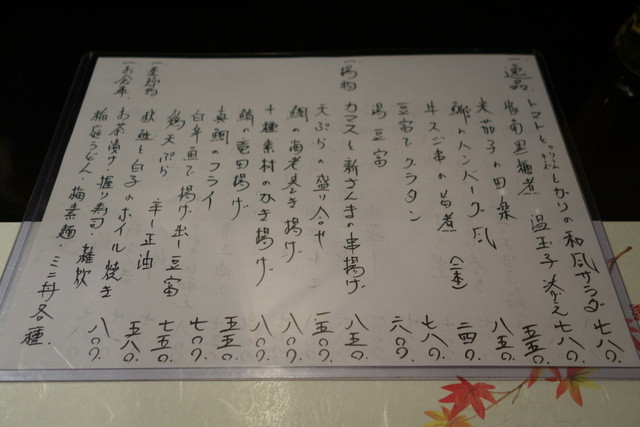 一逸品
トマトと とかりの和風サラダ 七八〇.
豚角黒糖煮 温玉子添え 五五〇.
米茄子の田楽 八五〇.
鰤のハンバーグ風 二四〇.
牛スジ串の旨煮(一本) 七八〇.
豆富でグラタン 六〇〇.
湯豆富
一揚物
カマスと新ぎんなんの串揚げ 八五〇.
天ぷらの盛り合せ 一五〇〇.
鯛の海老巻き揚げ 八〇〇.
十種素材のかき揚げ 八〇〇.
鯖の竜田揚げ 五五〇.
真鯛のフライ 七〇〇.
白身魚で揚げ出し豆富 七五〇.
鶏天ぷら 辛し正油 五八〇.
秋鮭と白子のホイル焼き 八〇〇.
一お食事
お茶漬け・握り寿司・雑炊
稲庭うどん・梅素麺・ミニ丼各種.